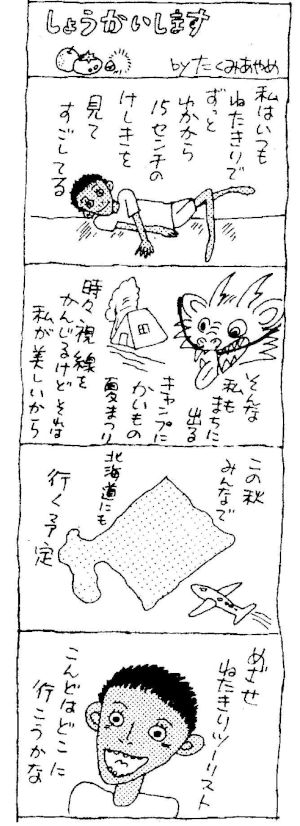 しょうかいします
byたくみあやめ
私はいつも
ねたきりで
ずっと
ゆかから
15センチの
けしきを
見て
すごしてる
そんな
私も
まちに
出る
キャンプに
かいもの
夏まつり
時々、視線を
かんじるけどそれは
私が美しいから
この秋
みんなで
北海道にも
行く予定
めざせ
ねたきりツーリスト
こんどはどこに
行こうかな